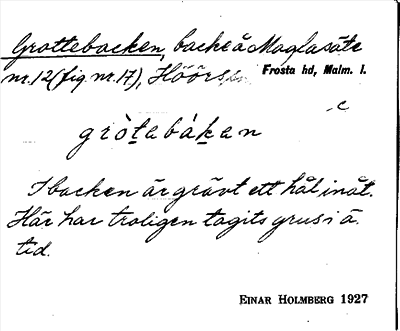 Grottebacken, backe å Maglasäte
nr. 12 (fig nr. 17), Höörs sn Frosta hd, Malm. l.
c
gròtabàkan
I backen är grävt ett hål inåt.
Här har troligen tagits grus i ä.
tid.
EINAR HOLMBERG 1927